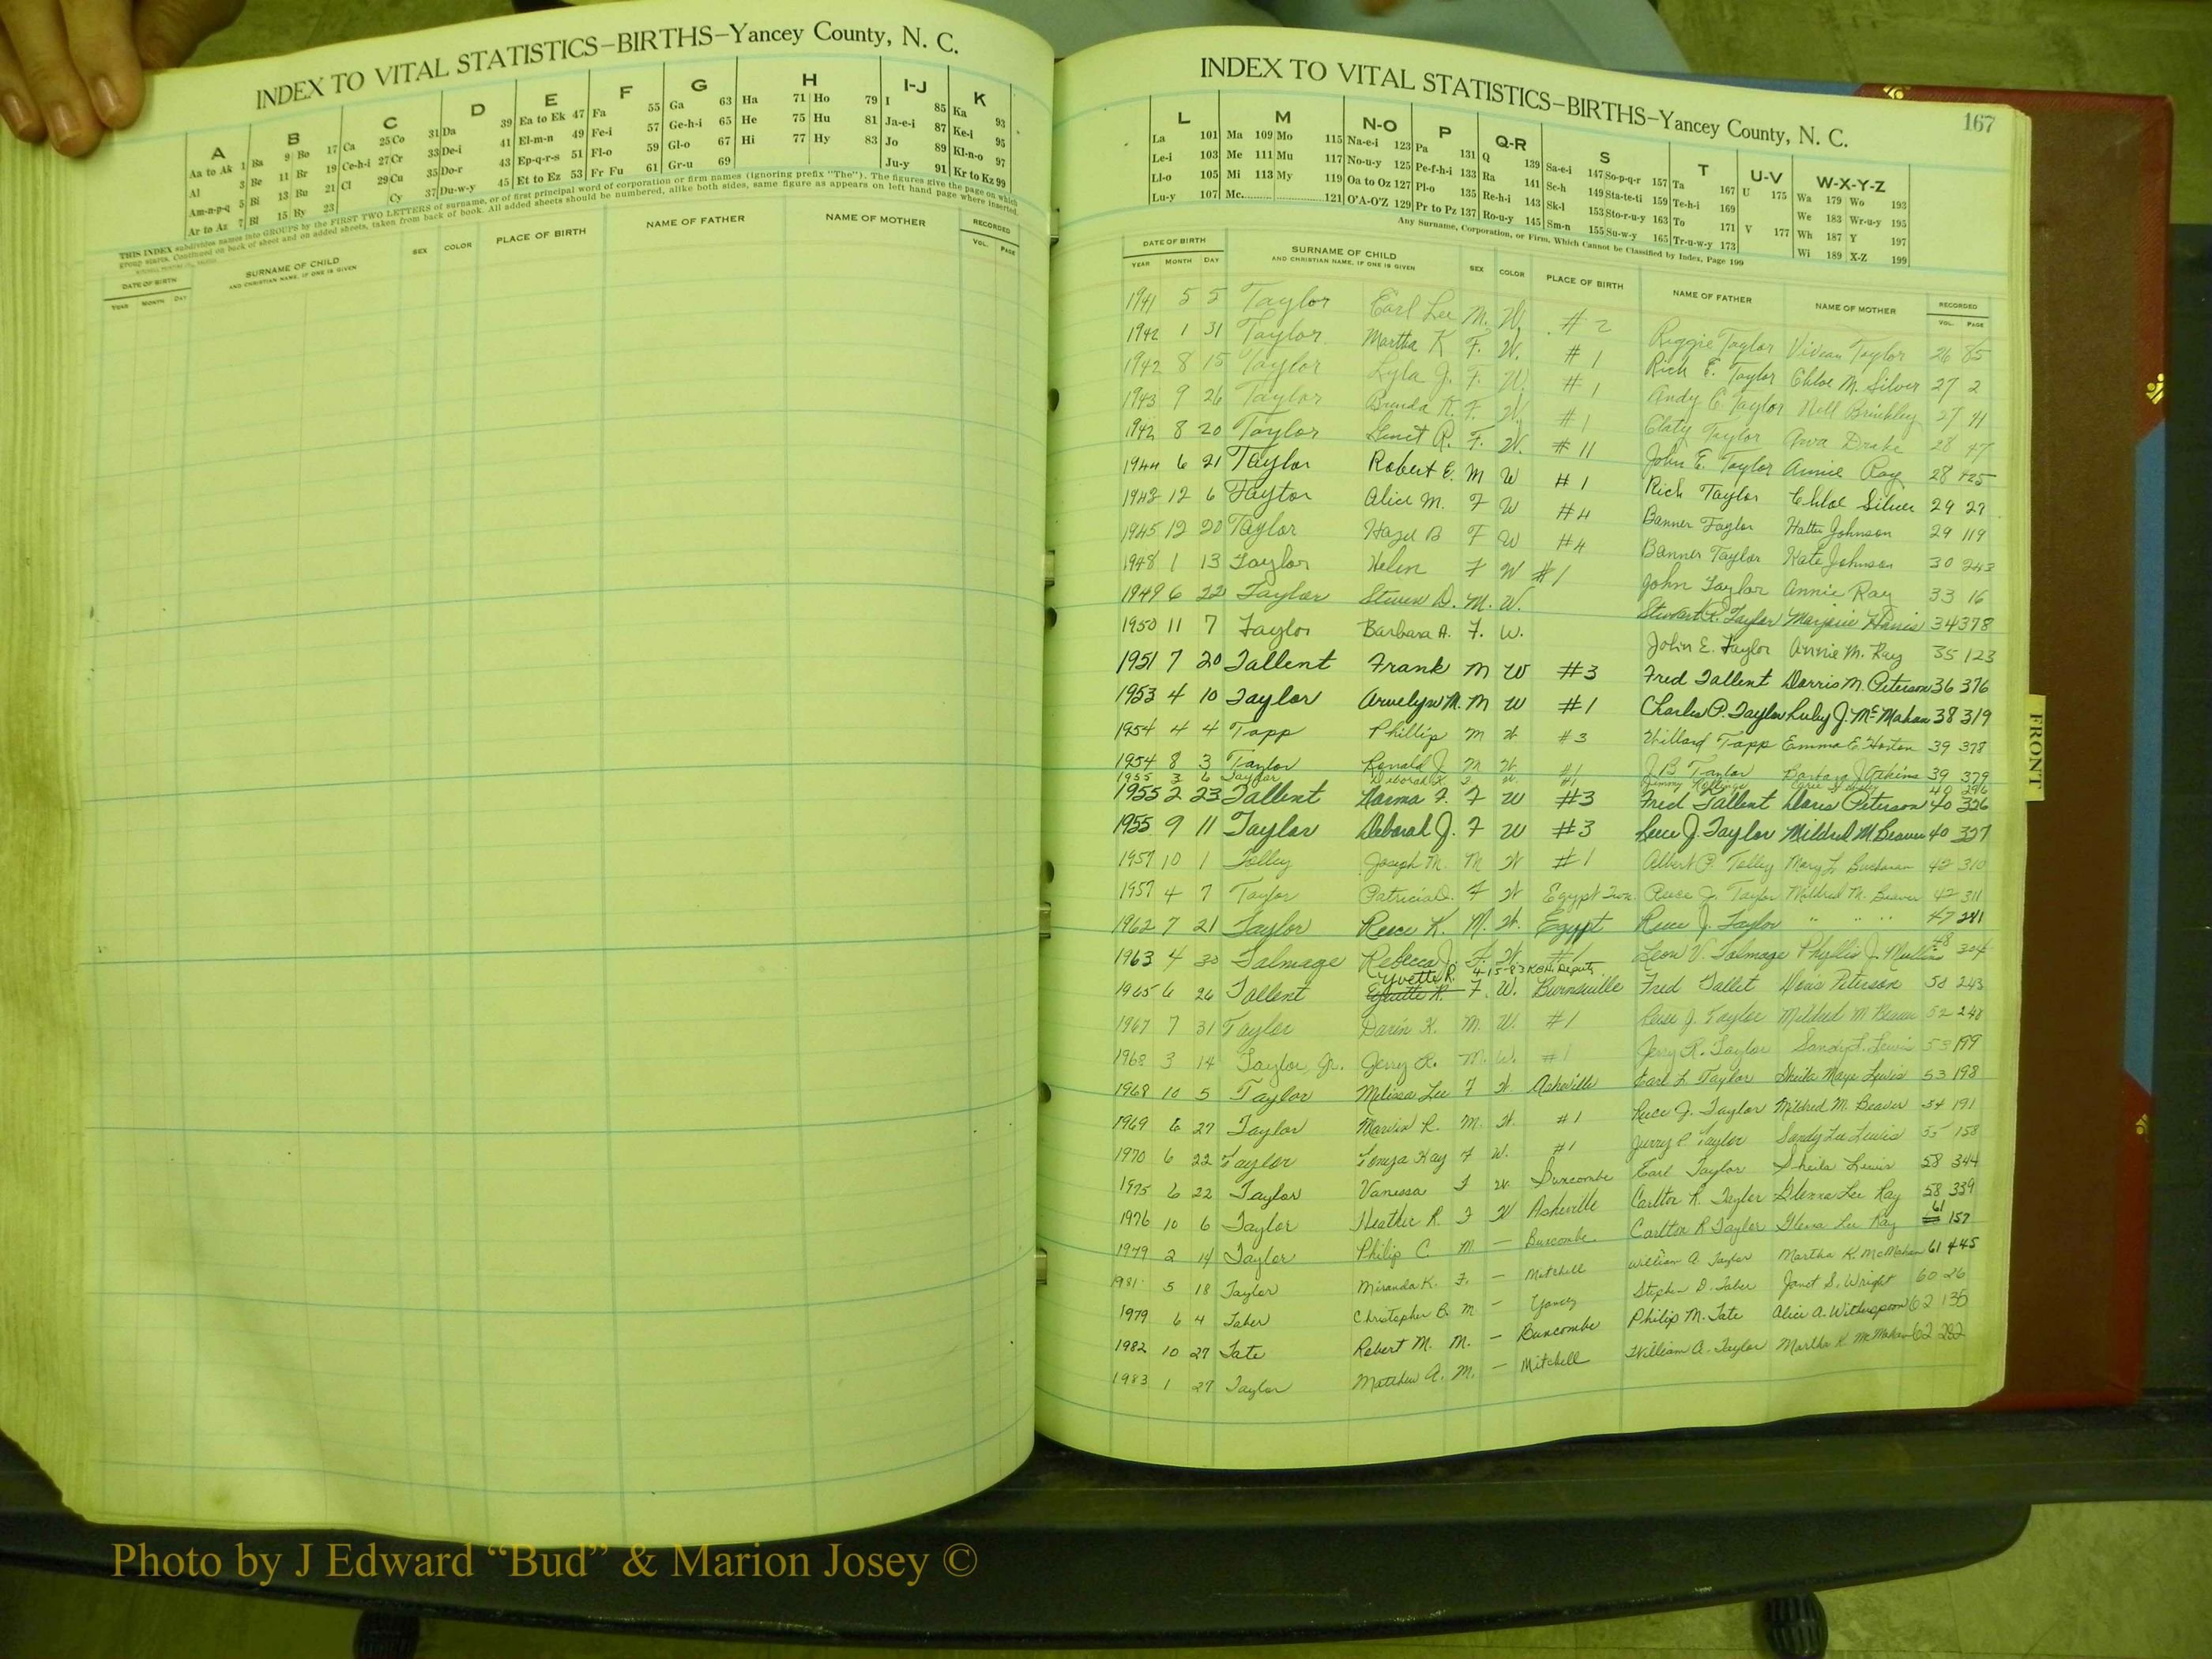 INDEX TO VITAL STATISTICS–BIRTHS–Yancey County, N. C.
A B C D E F G H I-J K
Aa to Ak 1 Ba 9 Bo 17 Ca 25 Co 31 Da 39 Ea to Ek 47 Fa 55 Ga 63 Ha 71 Ho 79 I 85 Ka 93
Al 3 Be 11 Br 19 Ce-h-i 27 Cr 33 De-i 41 El-m-n 49 Fe-i 57 Ge-h-i 65 He 75 Hu 81 Ja-e-i 87 Ke-i 95
Am-n-p-q 5 Bi 13 Bu 21 Cl 29 Cu 35 Do-r 43 Ep-q-r-s 51 Fl-o 59 Gl-o 67 Hi 77 Hy 83 Jo 89 Kl-n-o 97
Ar to Az 7 Bl 15 By 23 Cy 37 Du-w-y 45 Et to Ez 53 Fr Fu 61 Gr-u 69 Ju-y 91 Kr to Kz 99
THIS INDEX subdivides names into GROUPS by the FIRST TWO LETTERS of surname, or of first principal word of corporation or firm names (ignoring prefix "The"). The figures give the page on which
group starts. Continued on back of sheet and on added sheets, taken from back of book. All added sheets should be numbered, alike both sides, same figure as appears on left hand page where inserted.
DATE OF BIRTH SURNAME OF CHILD SEX COLOR PLACE OF BIRTH NAME OF FATHER NAME OF MOTHER RECORDED
YEAR MONTH DAY AND CHRISTIAN NAME, IF ONE IS GIVEN VOL. PAGE
INDEX TO VITAL STATISTICS–BIRTHS–Yancey County, N. C. 167
L M N-O P Q-R S T U-V W-X-Y-Z
La 101 Ma 109 Mo 115 Na-e-i 123 Pa 131 Q 139 Sa-e-i 147 So-p-q-r 157 Ta 167 U 175 Wa 179 Wo 193
Le-i 103 Me 111 Mu 117 No-u-y 125 Pe-f-h-i 133 Ra 141 Sc-h 149 Sta-te-ti 159 Te-h-i 169 We 183 Wr-u-y 195
Ll-o 105 Mi 113 My 119 Oa to Oz 127 Pl-o 135 Re-h-i 143 Sk-l 153 Sto-r-u-y 163 To 171 V 177 Wh 187 Y 197
Lu-y 107 Mc. 121 O'A-O'Z 129 Pr to Pz 137 Ro-u-y 145 Sm-n 155 Su-w-y 165 Tr-u-w-y 173 Wi 189 X-Z 199
Any Surname, Corporation, or Firm, Which Cannot be Classified by Index, Page 199
DATE OF BIRTH SURNAME OF CHILD SEX COLOR PLACE OF BIRTH NAME OF FATHER NAME OF MOTHER RECORDED
YEAR MONTH DAY AND CHRISTIAN NAME, IF ONE IS GIVEN VOL. PAGE
1941 5 5 Taylor Earl Lee M. W. #2 Reggie Taylor Vivian Taylor 26 85
1942 1 31 Taylor Martha K F. W. #1 Rick E. Taylor Chloe M. Silver 27 2
1942 8 15 Taylor Lyla J. F. W. #1 Andy C Taylor Nell Brinkley 27 41
1943 9 26 Taylor Brenda K. F. W. #1 Taylor Drake 28 47
1942 8 20 Taylor R. F. W. #11 John E. Taylor Annie Ray 28
1944 6 21 Taylor Robert E. M W #1 Rich Taylor Chloe Silver 29 27
12 6 Taylor Alice M. F W #4 Banner Taylor Johnson 29 119
1945 12 20 Taylor Hazel B F W #4 Banner Taylor Kate Johnson 30 243
1948 1 13 Taylor Helen F W #1 John Taylor Annie Ray 33 16
1949 6 22 Taylor Steven D. M. W. Stewart R. Taylor Marjorie Harris 34 378
1950 11 7 Taylor Barbara A. F. W. John E. Taylor Annie M. Ray 35 123
1951 7 20 Tallent Frank M W #3 Fred Tallent Dorris M. Peterson 36 376
1953 4 10 Taylor Arvelyn M. M W #1 Charles P. Taylor Ruby J. McMahan 38 319
1954 4 4 Tapp Phillip M W #3 Willard Tapp Emma E. Horton 39 378
1954 8 3 Taylor Ronald J. M W #1 J B Taylor Barbara J Atkins 39 379
1955 3 6 Taylor Deborah F W #1 40
1955 2 23 Tallent Norma F. F W #3 Fred Tallent Doris Peterson 40 326
1955 9 11 Taylor Deborah J. F W #3 Reece J. Taylor Mildred M Beaver 40 327
1957 10 1 Tolley Joseph M. M W #1 Albert P. Tolley Mary L. Buchanan 42 310
1957 4 7 Taylor Patricia D. F W Egypt Twn. Reece J. Taylor Mildred M. Beaver 42 311
1962 7 21 Taylor Reece K. M. W. Egypt Reece J. Taylor " " " " 47 281
1963 4 30 Talmage Rebecca J. F. W. #1 Leon V. Talmage Phyllis J. 48 304
Yvette R. 4-15-83 Deputy
1965 6 26 Tallent F. W. Burnsville Fred Tallet Doris Peterson 50 243
1967 7 31 Taylor Darin K. M. W. #1 Reece J. Taylor Mildred M Beaver 52 248
1968 3 14 Taylor, Jr. Jerry R. M. W. #1 Jerry R. Taylor Sandy L. Lewis 53 199
1968 10 5 Taylor Melissa Lee F W. Asheville Earl L Taylor Sheila Maye Lewis 53 198
1969 6 27 Taylor R. M. W. #1 Reece J. Taylor Mildred M. Beaver 54 191
1970 6 22 Taylor Tonya Kay F W. #1 Jerry R Taylor Sandy Lee Lewis 55 158
1975 6 22 Taylor Vanessa F W. Buncombe Earl Taylor Sheila Lewis 58 344
1976 10 6 Taylor Heather R. F W Asheville Carlton R. Taylor Glenna Lee Ray 58 339
1979 2 14 Taylor Philip C. M — Buncombe Carlton R Taylor Glena Lee Ray 61 157
1981 5 18 Taylor Miranda K. F. — Mitchell William A Taylor Martha K. McMahan 61 445
1979 6 4 Taber Christopher B. M — Yancey Stephen D. Taber Janet S. Wright 60 26
1982 10 27 Tate Robert M. M. — Buncombe Philip M. Tate Alice A. Witherspoon 62 135
1983 1 27 Taylor Matthew A. M. — Mitchell William A. Taylor Martha K McMahan 62 282
FRONT
Photo by J Edward “Bud” & Marion Josey ©